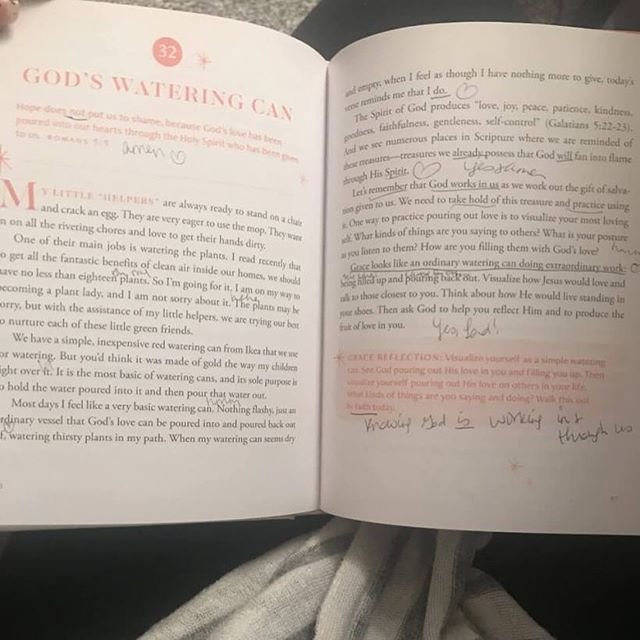 32
GOD'S WATERING CAN
Hope does not put us to shame, because God's love has been
poured into our hearts through the Holy Spirit who has been given
to us. ROMANS 5:5
amen
MY LITTLE "HELPERS" are always ready to stand on a chair
and crack an egg. They are very eager to use the mop. They want
on all the riveting chores and love to get their hands dirty.
One of their main jobs is watering the plants. I read recently that
to get all the fantastic benefits of clean air inside our homes, we should
have no less than eighteen plants. So I'm going for it. I am on my way to
becoming a plant lady, and I am not sorry about it. The plants may be
sorry, but with the assistance of my little helpers, we are trying our best
to nurture each of these little green friends.
We have a simple, inexpensive red watering can from Ikea that we use
for watering. But you'd think it was made of gold the way my children
fight over it. It is the most basic of watering cans, and its sole purpose is
to hold the water poured into it and then pour that water out.
Most days I feel like a very basic watering can. Nothing flashy, just an
ordinary vessel that God's love can be poured into and poured back out
of, watering thirsty plants in my path. When my watering can seems dry
and empty, when I feel as though I have nothing more to give, today's
verse reminds me that I do.
The Spirit of God produces "love, joy, peace, patience, kindness,
goodness, faithfulness, gentleness, self-control" (Galatians 5:22-23).
And we see numerous places in Scripture where we are reminded of
these treasures—treasures we already possess that God will fan into flame
through His Spirit.
Let's remember that God works in us as we work out the gift of salva-
tion given to us. We need to take hold of this treasure and practice using
it. One way to practice pouring out love is to visualize your most loving
self. What kinds of things are you saying to others? What is your posture
as you listen to them? How are you filling them with God's love?
Grace looks like an ordinary watering can doing extraordinary work—
being filled up and pouring back out. Visualize how Jesus would love and
talk to those closest to you. Think about how He would live standing in
your shoes. Then ask God to help you reflect Him and to produce the
fruit of love in you.
Yes, Lord!
GRACE REFLECTION: Visualize yourself as a simple watering
can. See God pouring out His love in you and filling you up. Then
visualize yourself pouring out His love on others in your life.
What kinds of things are you saying and doing? Walk this out
in faith today.
Knowing God is working in &
through us